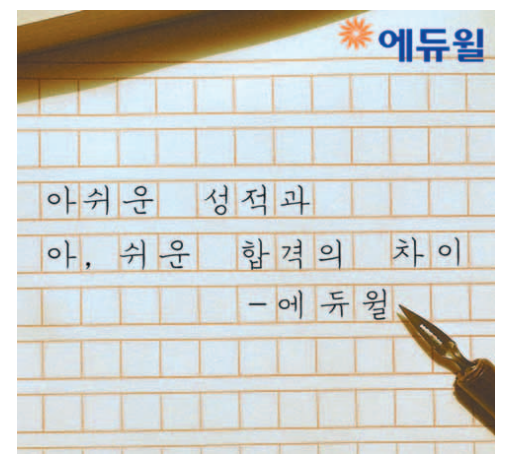 에듀윌
아쉬운 성적과
아, 쉬운 합격의 차이
-에듀윌